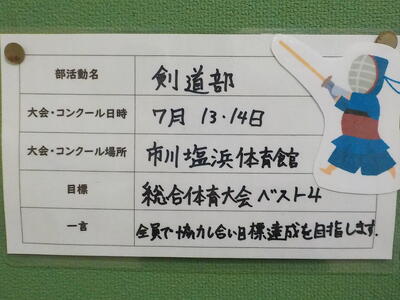 部活動名 剣道部
大会・コンクール日時 7月 13・14日
大会・コンクール場所 市川塩浜体育館
目標 総合体育大会 ベスト4
一言 全員で協力し合い目標達成を目指します.